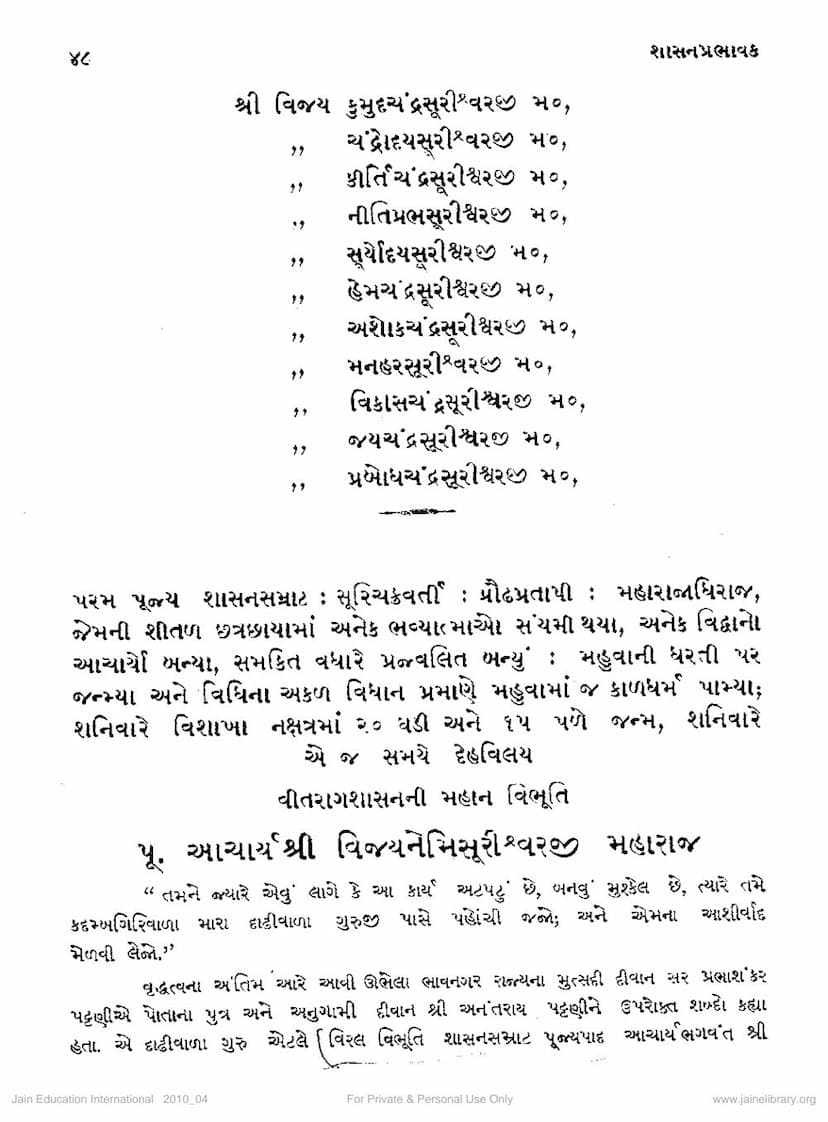 ૪૮
શાસનપ્રભાવક
શ્રી વિજય કુમુદચંદ્રસૂરીશ્વરજી મ૦,
,, ચંદ્રોદયસૂરીશ્વરજી મ૦,
,, કીર્તિચંદ્રસૂરીશ્વરજી મ૦,
,, નીતિપ્રભસૂરીશ્વરજી મ૦,
,, સૂર્યોદયસૂરીશ્વરજી મ૦,
,, હેમચંદ્રસૂરીશ્વરજી મ૦,
,, અશોકચંદ્રસૂરીશ્વરજી મ૦,
,, મનહરસૂરીશ્વરજી મ૦,
,, વિકાસચંદ્રસૂરીશ્વરજી મ૦,
,, જયચંદ્રસૂરીશ્વરજી મ૦,
,, પ્રબોધચંદ્રસૂરીશ્વરજી મ૦,
પરમ પૂજ્ય શાસનસમ્રાટ : સૂરિચક્રવર્તી : પ્રૌઢપ્રતાપી : મહારાજાધિરાજ,
જેમની શીતળ છત્રછાયામાં અનેક ભવ્યાત્માઓ સંયમી થયા, અનેક વિદ્વાનો
આચાર્યો બન્યા, સમકિત વધારે પ્રજ્વલિત બન્યું : મહુવાની ધરતી પર
જન્મ્યા અને વિધિના અકળ વિધાન પ્રમાણે મહુવામાં જ કાળધર્મ પામ્યા;
શનિવારે વિશાખા નક્ષત્રમાં ૨૦ ઘડી અને ૧૫ પળે જન્મ, શનિવારે
એ જ સમયે દેહવિલય
વીતરાગશાસનની મહાન વિભૂતિ
પૂ. આચાર્યશ્રી વિજયનેમિસૂરીશ્વરજી મહારાજ
“ તમને જ્યારે એવું લાગે કે આ કાર્ય અટપટું છે, બનવું મુશ્કેલ છે, ત્યારે તમે
કદમ્બગિરિવાળા મારા દાઢીવાળા ગુરુજી પાસે પહોંચી જજો; અને એમના આશીર્વાદ
મેળવી લેજો.”
વૃદ્ધત્વના અંતિમ આરે આવી ઊભેલા ભાવનગર રાજ્યના મુત્સદ્દી દીવાન સર પ્રભાશંકર
પટ્ટણીએ પોતાના પુત્ર અને અનુગામી દીવાન શ્રી અનંતરાય પટ્ટણીને ઉપરોક્ત શબ્દો કહ્યા
હતા. એ દાઢીવાળા ગુરુ એટલે વિરલ વિભૂતિ શાસનસમ્રાટ પૂજ્યપાદ આચાર્યભગવંત શ્રી
Jain Education International 2010_04
For Private & Personal Use Only
www.jainelibrary.org